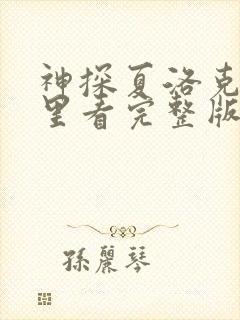 神探夏洛克
里看完整版
孫麗琴